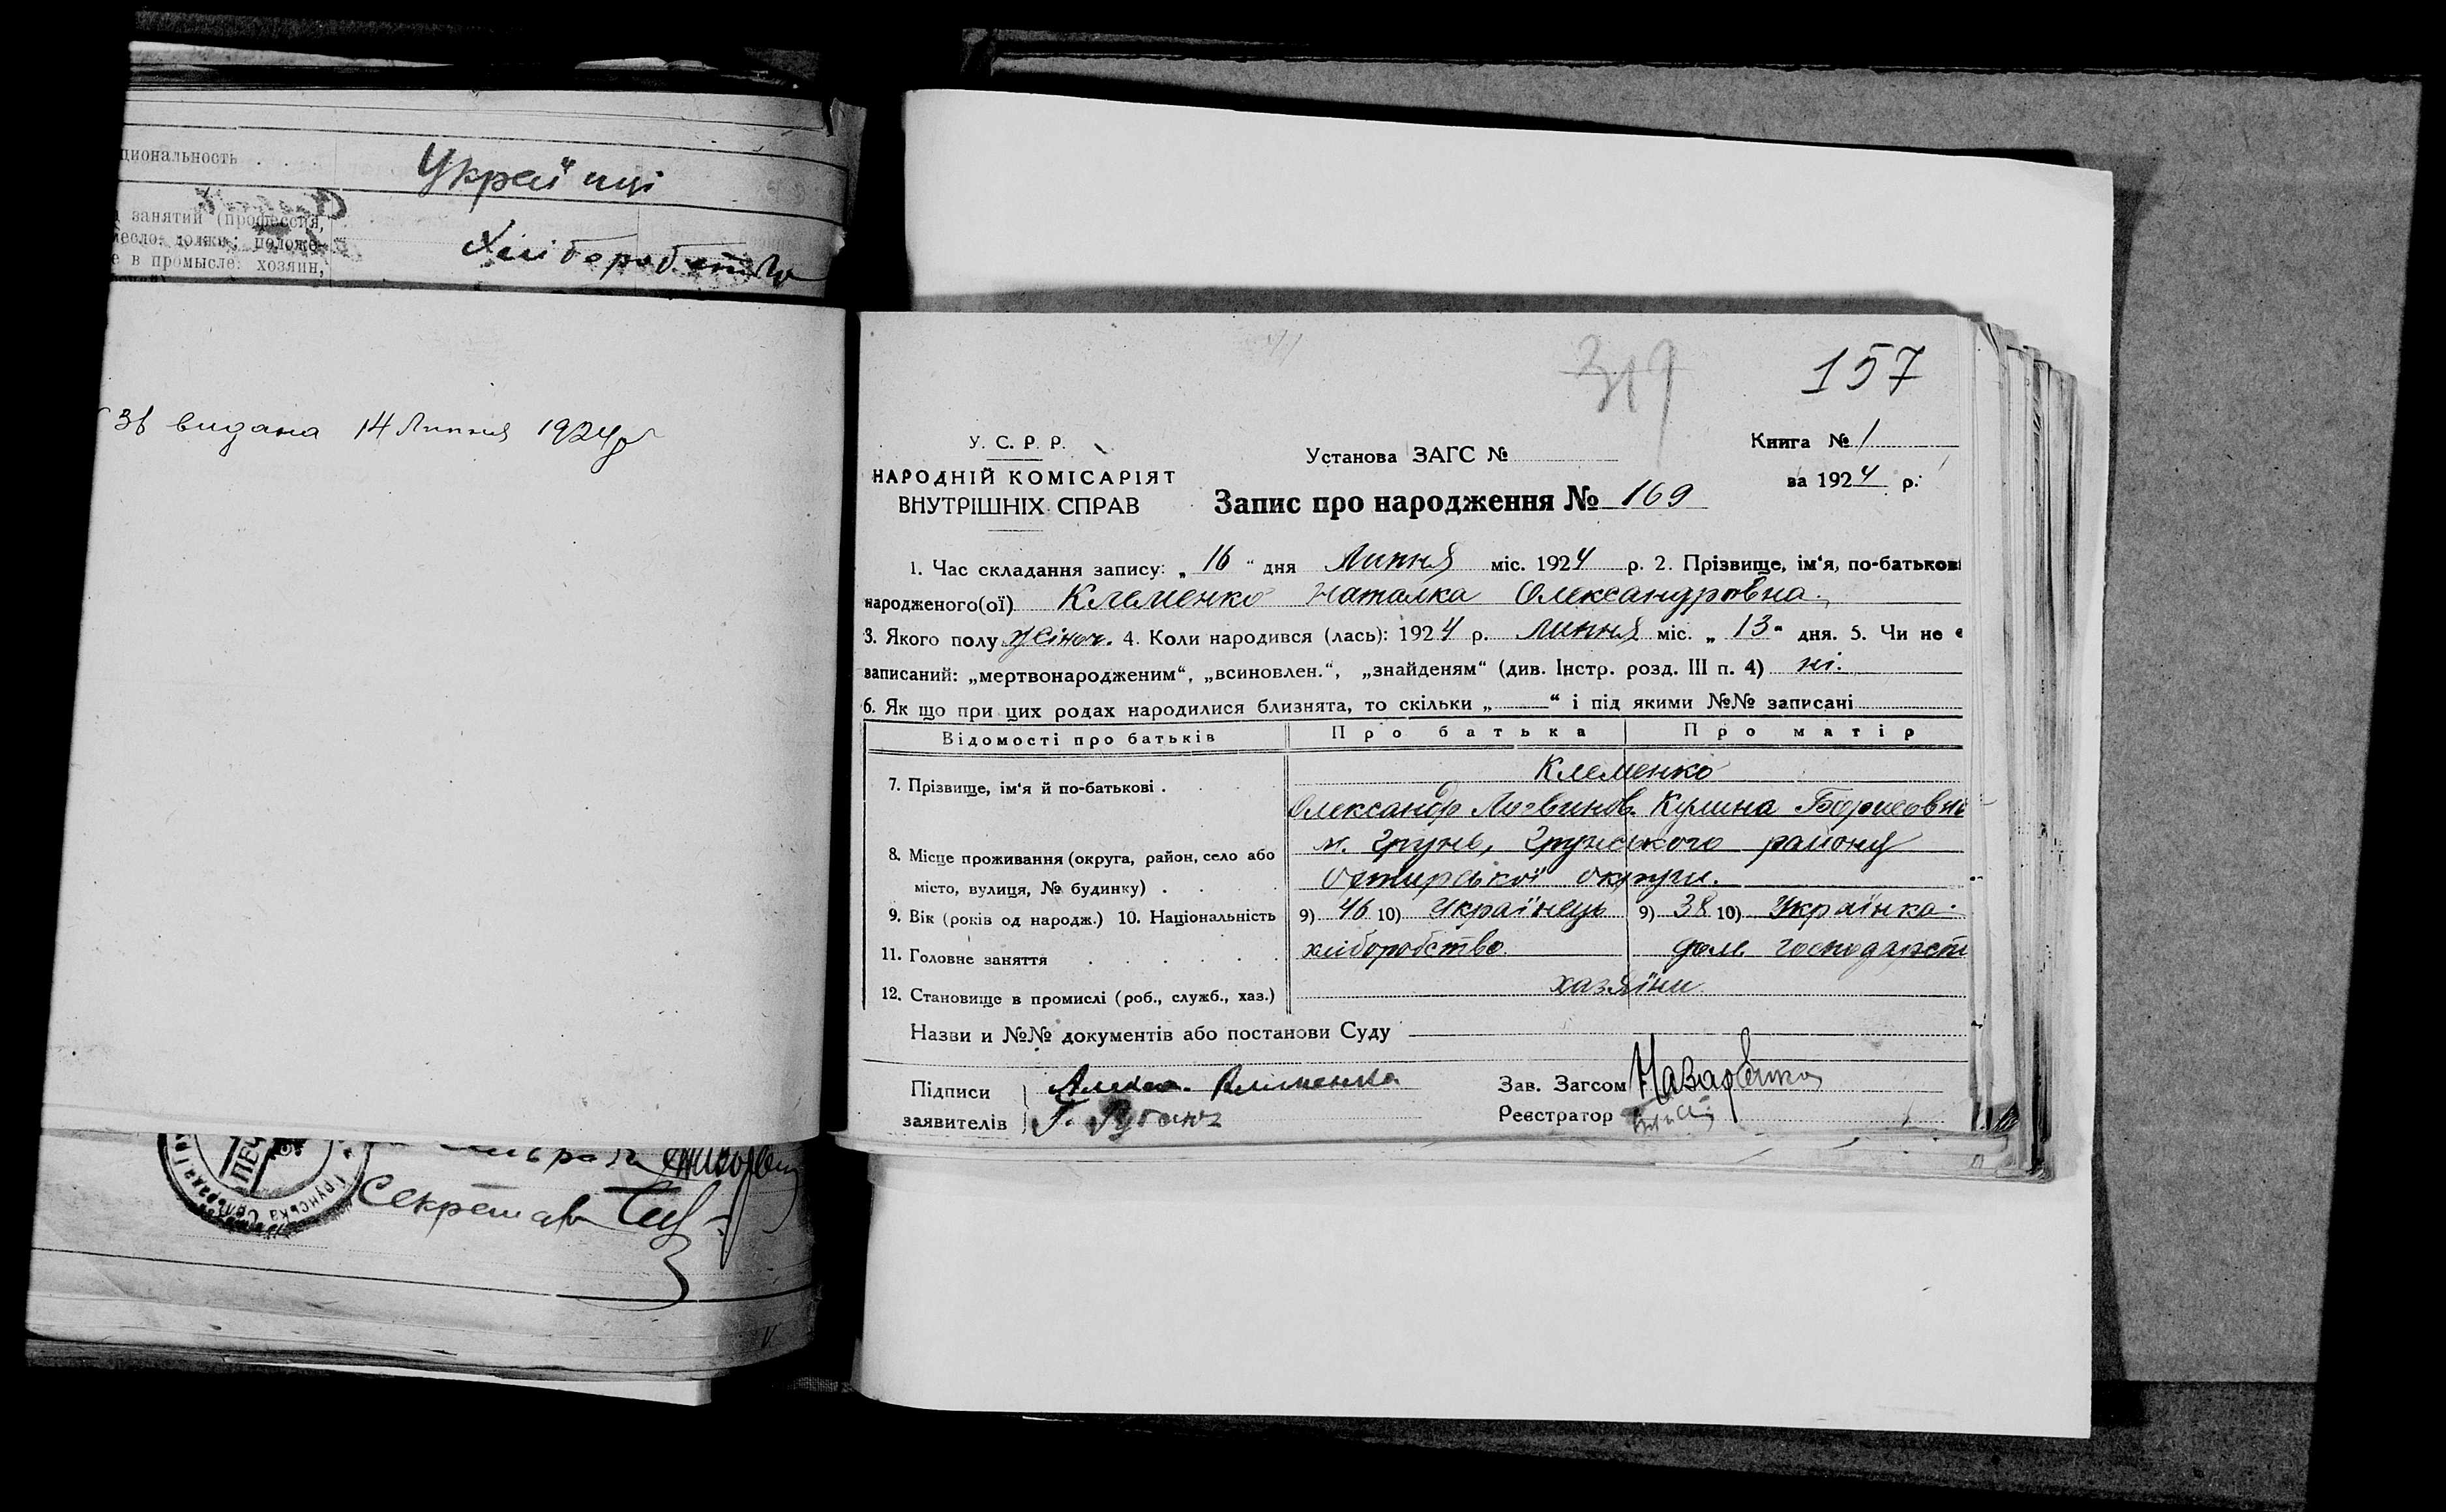 циональность
Українці
занятий (профессия,
должн; положе-
е в промысле: хозяин,
Хліборобство
видана 14 Липня 1924р
Секретар
319
157
У. С. Р. Р.
НАРОДНІЙ КОМІСАРІЯТ
ВНУТРІШНІХ СПРАВ
Установа ЗАГС №
Книга № 1
за 1924 р.
Запис про народження № 169
1. Час складання запису: „ 16 “ дня Липня міс. 1924 р. 2. Прізвище, ім‘я, по-батькові
народженого(ої) Клеменко Наталка Олександровна.
3. Якого полу жіноч. 4. Коли народився (лась): 1924 р. Липня міс. „ 13 “ дня. 5. Чи не є
записаний: „мертвонародженим“, „всиновлен.“, „знайденям“ (див. Інстр. розд. III п. 4) ні.
6. Як що при цих родах народилися близнята, то скільки „ — “ і під якими №№ записані
Відомості про батьків Про батька Про матір
7. Прізвище, ім‘я й по-батькові . Клеменко
Олександр Логвинов. Кулина Борисовна
8. Місце проживання (округа, район, село або м. Грунь, Грунського району
місто, вулиця, № будинку) . Охтирської округи.
9. Вік (років од народж.) 10. Національність 9) 46 10) Українець 9) 38 10) Українка.
11. Головне заняття хліборобство. дом. господарст
12. Становище в промислі (роб., служб., хаз.) хазяїни.
Назви и №№ документів або постанови Суду
Підписи Клименко Зав. Загсом Назаренко
заявителів Г. Реєстратор